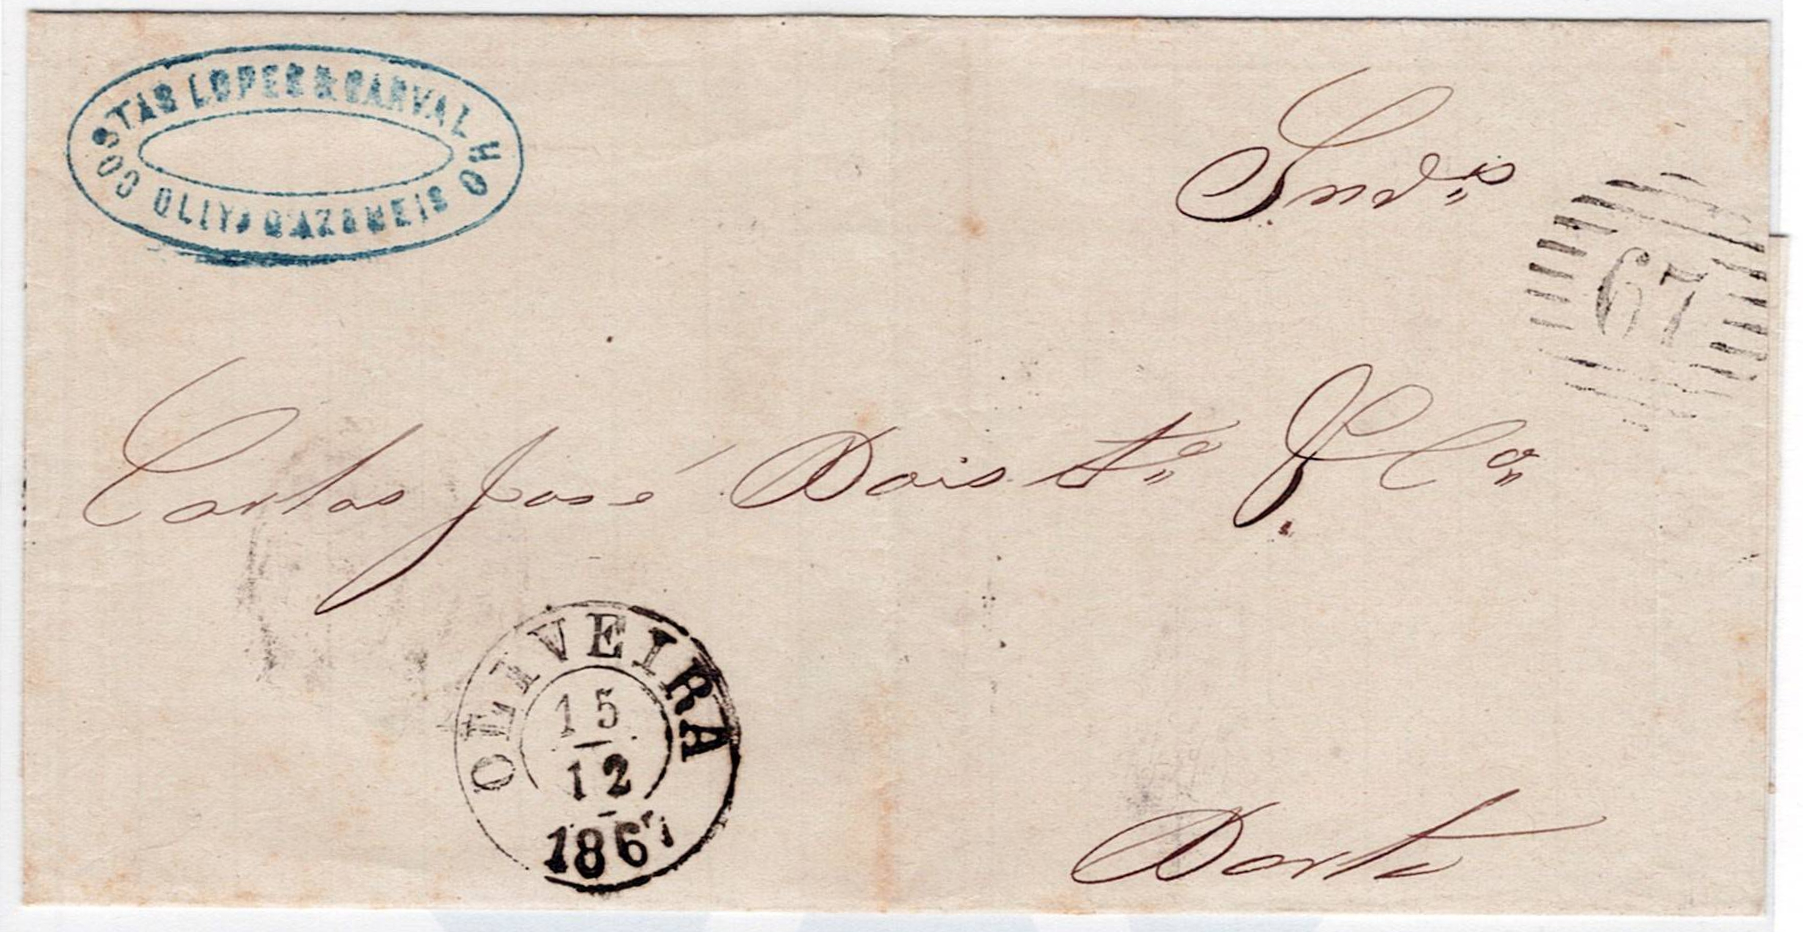 COSTAS LOPES & CARVALHO
OLIVA D'AZEMEIS
Snr.s
67
Carlos José
& Ca
OLIVEIRA
15
12
1867
Porto